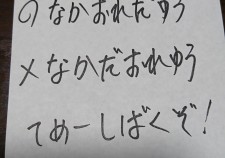 のなかおれだゆう
メなかだおれゆう
てめーしばくぞ！